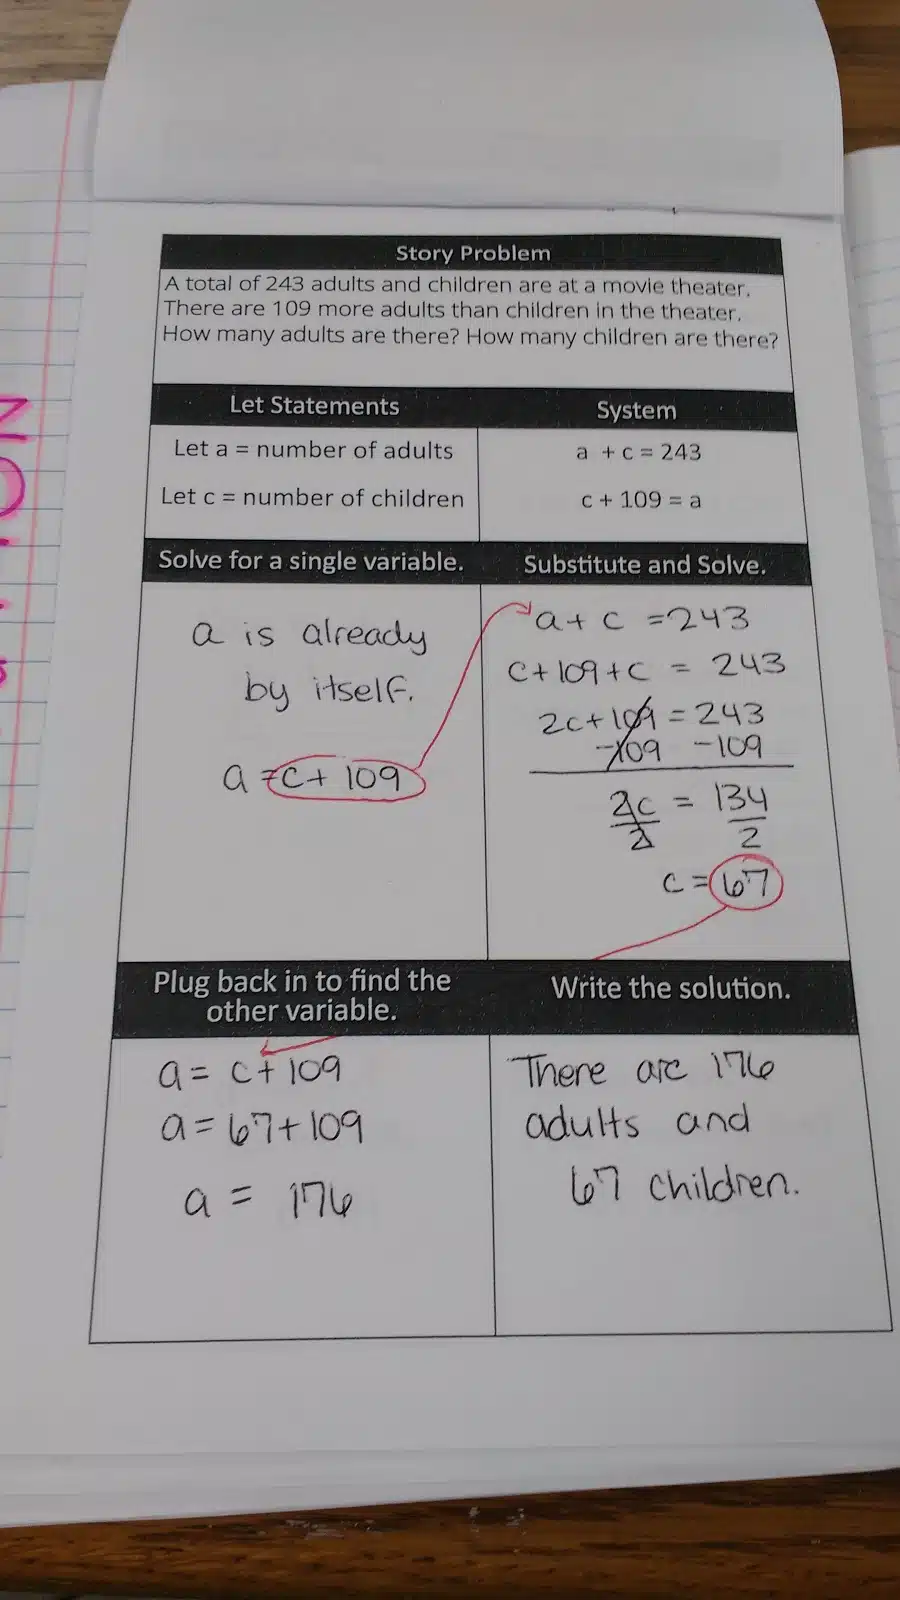 Story Problem
A total of 243 adults and children are at a movie theater.
There are 109 more adults than children in the theater.
How many adults are there? How many children are there?
Let Statements
Let a = number of adults
Let c = number of children
System
a + c = 243
c + 109 = a
Solve for a single variable.
a is already
by itself.
a = c + 109
Substitute and Solve.
a + c = 243
c + 109 + c = 243
2c + 109 = 243
-109 -109
2c = 134
2 2
c = 67
Plug back in to find the
other variable.
a = c + 109
a = 67 + 109
a = 176
Write the solution.
There are 176
adults and
67 children.